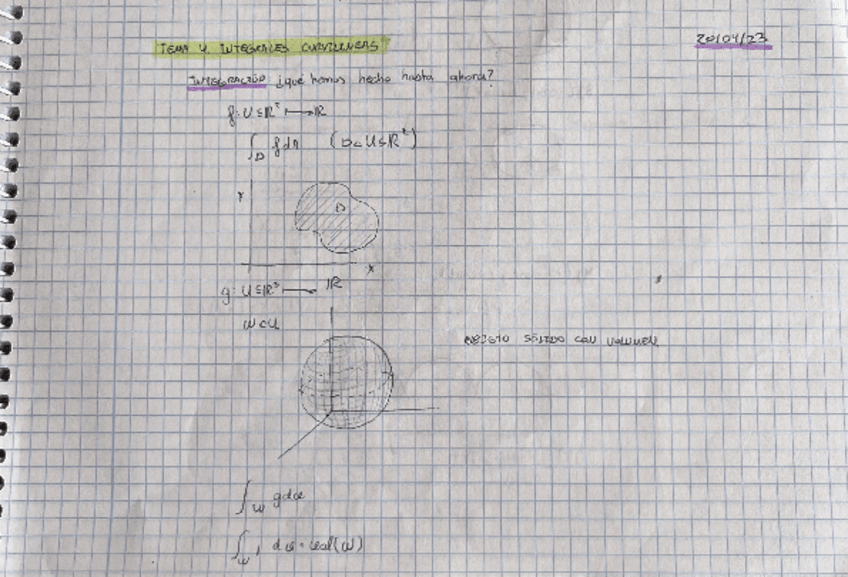 TEMA 4. INTEGRALES CURVILINEAS
20/04/23
INTEGRACIÓN ¿qué hemos hecho hasta ahora?
f: U ⊆ ℝ² ⟼ ℝ
∫_D f dA (D ⊂ U ⊆ ℝ²)
Y
D
X
g: U ⊆ ℝ³ ⟼ ℝ
W ⊂ U
OBJETO SÓLIDO CON VOLUMEN
∫_W g dx
∫_W 1 dx = vol(W)